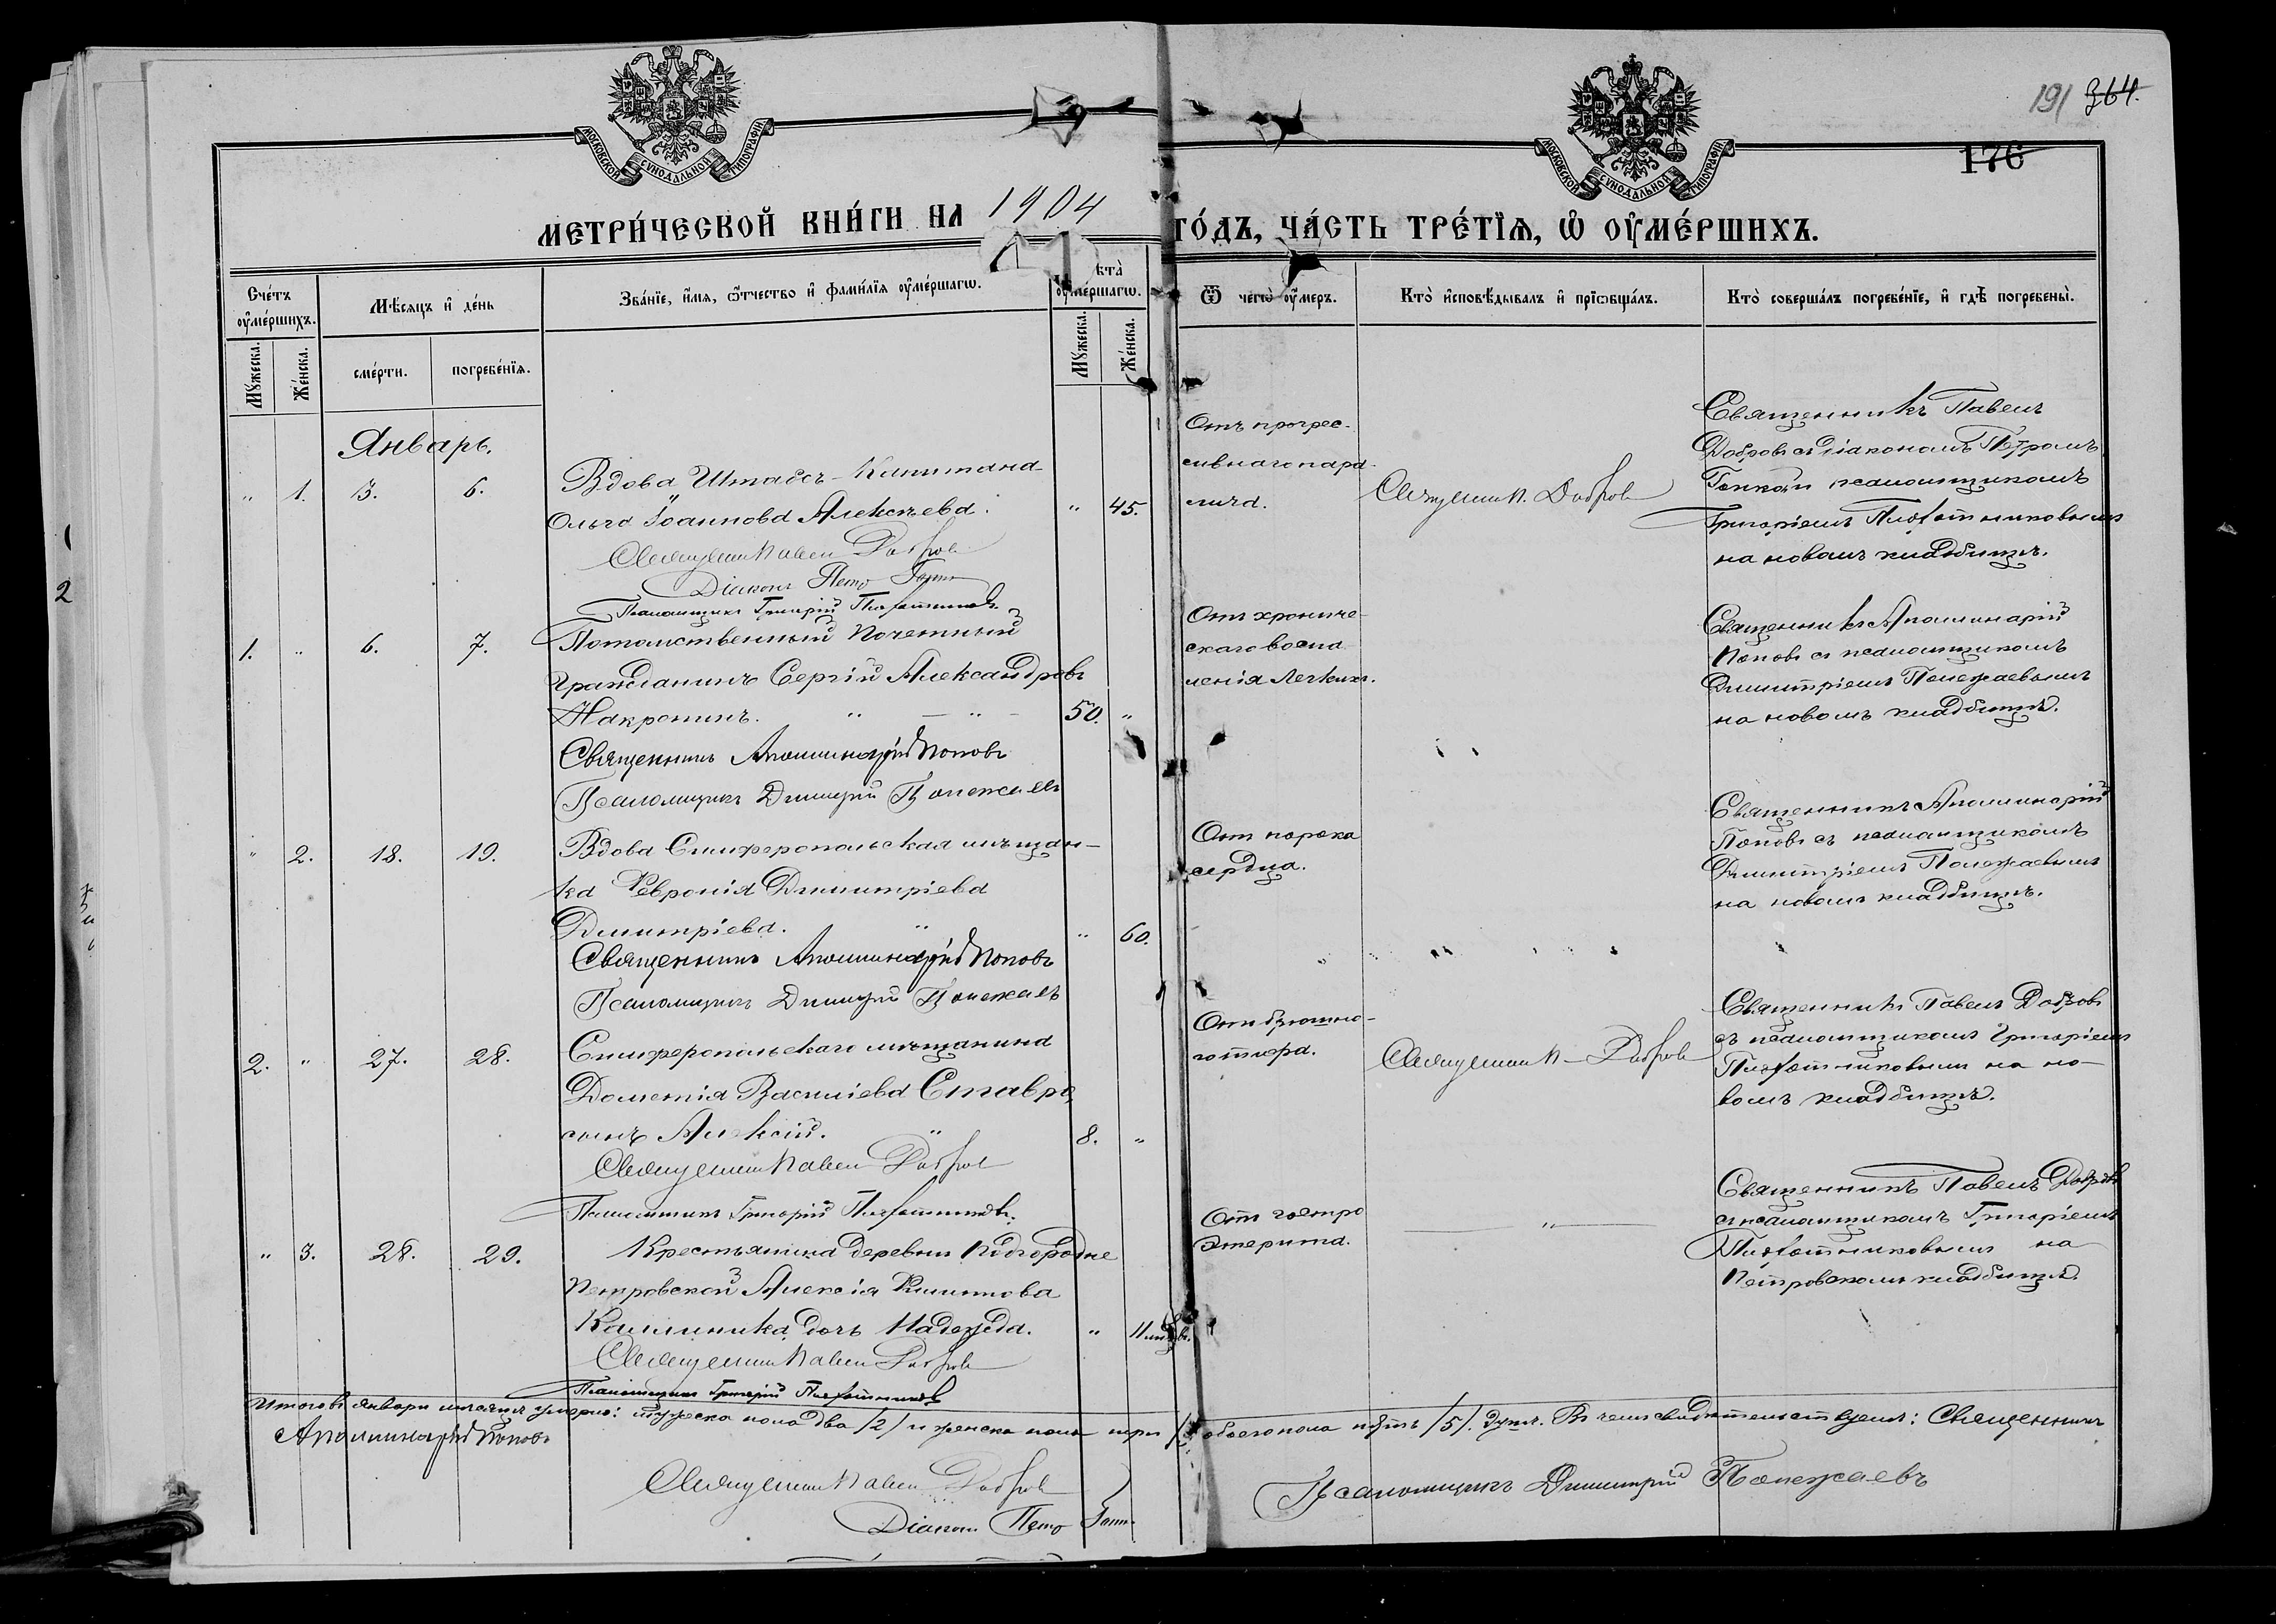 191 364.
176
МОСКОВСКОЙ СѴНОДАЛЬНОЙ ТИПОГРАФІИ
МОСКОВСКОЙ СѴНОДАЛЬНОЙ ТИПОГРАФІИ
МЕТРИ́ЧЕСКОЙ КНИ́ГИ НА 1904 ГО́ДЪ, ЧА́СТЬ ТРЕ́ТІѦ, Ѡ҆ ОУ҆МЕ́РШИХЪ.
Сче́тъ оу҆ме́ршихъ.
Мѣ́сяцъ и҆ де́нь
Зва́нїе, и҆́мя, ѻ҆́тчество и҆ фами́лїя оу҆ме́ршагѡ.
Лѣта̀ оу҆ме́ршагѡ.
Ѿ чегѡ̀ оу҆́меръ.
Кто̀ и҆сповѣ́дывалъ и҆ прїѡбща́лъ.
Кто̀ соверша́лъ погребе́нїе, и҆ гдѣ̀ погребены̀.
Мꙋ́жеска.
Же́нска.
сме́рти.
погребе́нїя.
Мꙋ́жеска.
Же́нска.
Январь.
" 1. 3. 6.
Вдова Штабсъ-Капитана
Ольга Іоаннова Алексѣева. " 45.
Священникъ Павелъ Добровъ
Діаконъ Петръ
Псаломщикъ Григорій Плотниковъ
Отъ прогрес-
сивнаго пара-
лича.
Священник. Добровъ
Священникъ Павелъ
Добровъ съ діакономъ Петромъ
псаломщикомъ
Григоріемъ
на новомъ кладбищѣ.
1. " 6. 7.
Потомственный Почетный
Гражданинъ Сергій Александровъ
Накронинъ. " — " — 50. "
Священникъ Аполлинарій Поповъ
Псаломщикъ Димитрій Полежаевъ
Отъ хрониче-
скаго воспа-
ленія легкихъ.
Священникъ Аполлинарій
Поповъ съ псаломщикомъ
Димитріемъ Полежаевымъ
на новомъ кладбищѣ.
" 2. 18. 19.
Вдова Симферопольская мѣщан-
ка Февронія Димитріева
Димитріева. " " 60.
Священникъ Аполлинарій Поповъ
Псаломщикъ Димитрій Полежаевъ
От порока
сердца.
Священникъ Аполлинарій
Поповъ съ псаломщикомъ
Димитріемъ Полежаевымъ
на новомъ кладбищѣ.
2. " 27. 28.
Симферопольскаго мѣщанина
Дометія Василіева Ставро,
сынъ Алексій. " 8. "
Священникъ Павелъ Добровъ
Псаломщикъ Григорій
От брюшно-
го тифа.
Священник Добровъ
Священникъ Павелъ Добровъ
съ псаломщикомъ Григоріемъ
на но-
вомъ кладбищѣ.
" 3. 28. 29.
Крестьянина деревни Подгородне
Петровской Алексія Филиппова
Калиника, дочь Надежда. " 11 мѣсяцевъ.
Священникъ Павелъ Добровъ
Псаломщикъ Григорій
От гастро
Энтерита.
"
Священникъ Павелъ Добровъ
съ псаломщикомъ Григоріемъ
на
Петровскомъ кладбищѣ.
Итого въ январѣ мѣсяцѣ умерло: мужеска пола два /2/ и женска пола три /3/ обоего пола пять /5/ душъ. Въ чемъ свидѣтельствуемъ: Священникъ
Аполлинарій Поповъ
Священникъ Павелъ Добровъ
Псаломщикъ Димитрій Полежаевъ
Діаконъ Петръ